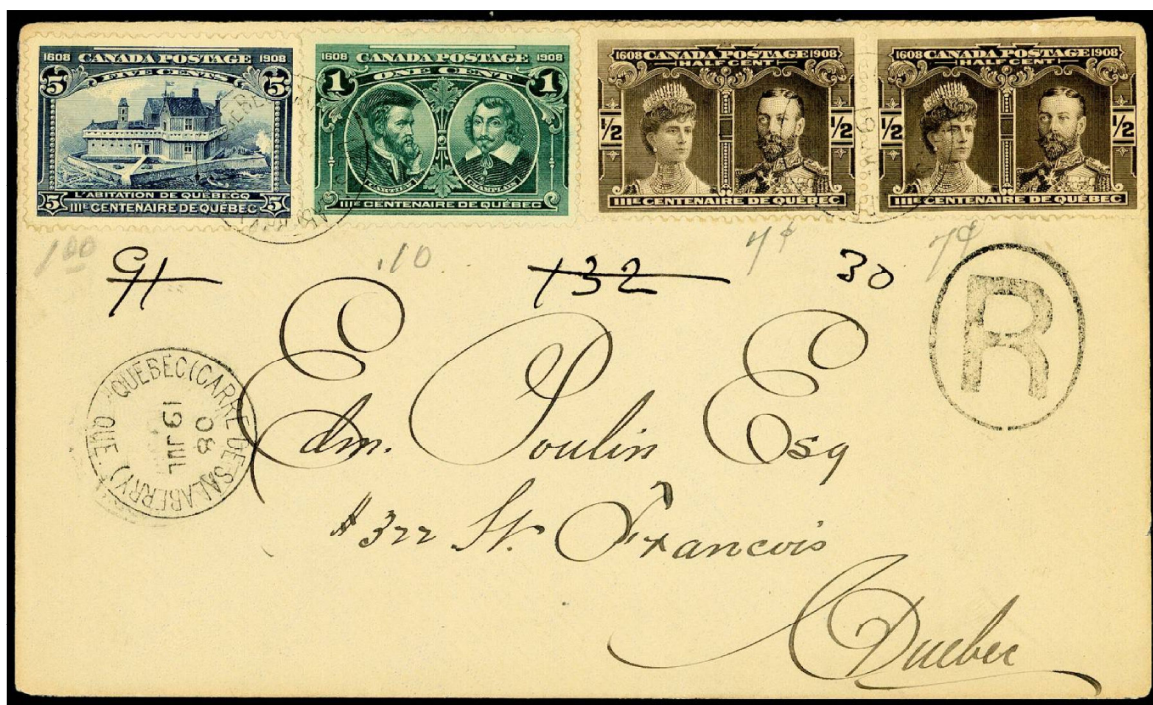 1608 CANADA POSTAGE 1908
5 FIVE CENTS 5
L'ABITION DE QUEBECQ
5 IIIE CENTENAIRE DE QUÉBEC 5
1608 CANADA POSTAGE 1908
1 ONE CENT 1
CARTIER CHAMPLAIN
IIIE CENTENAIRE DE QUÉBEC
1608 CANADA POSTAGE 1908
HALF CENT
1/2 1/2
IIIE CENTENAIRE DE QUÉBEC
1608 CANADA POSTAGE 1908
HALF CENT
1/2 1/2
IIIE CENTENAIRE DE QUÉBEC
1.00 .10 7¢ 7¢
91 132 30
R
QUEBEC (CARRE DE SALABERRY) QUE
19 JUL
08
Edm. Poulin Esq
#322 St. Francois
Quebec